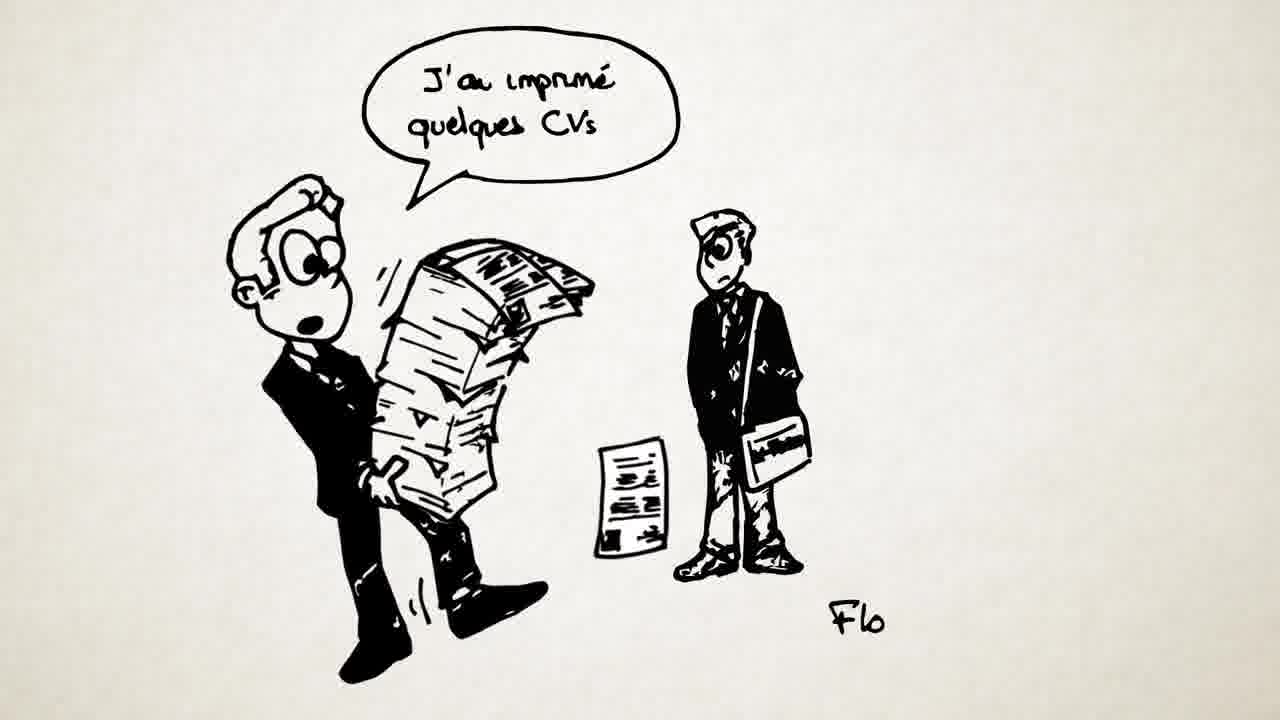 J'ai imprimé
quelques CVs
Flo